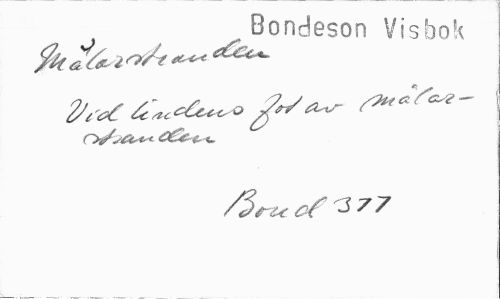 Bondeson Visbok
Mälarstranden
Vid lindens fot av mälar-
stranden
Bond 377